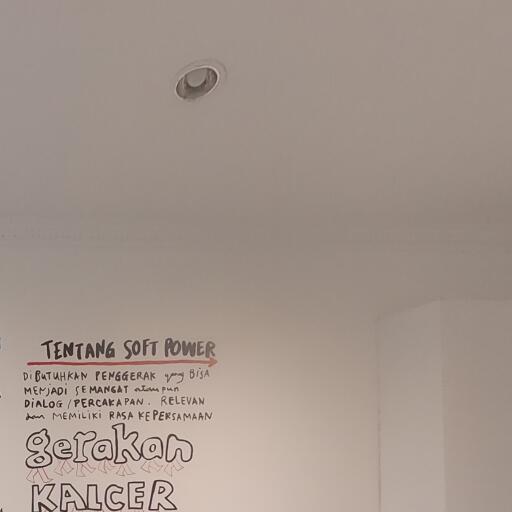 TENTANG SOFT POWER
DIBUTUHKAN PENGGERAK yang BISA
MENJADI SEMANGAT ataupun
DIALOG/PERCAKAPAN. RELEVAN
dan MEMILIKI RASA KEPERSAMAAN
gerakan
KALCER